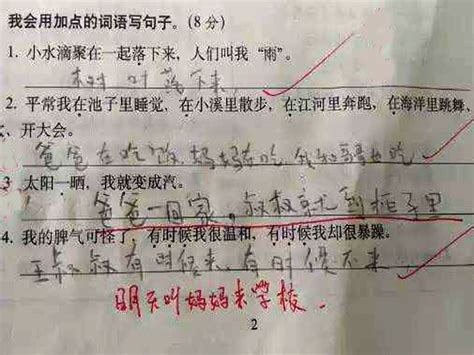 我会用加点的词语写句子。(8分)
1. 小水滴聚在一起落下来，人们叫我“雨”。
树叶落下来
2. 平常我在池子里睡觉，在小溪里散步，在江河里奔跑，在海洋里跳舞、
、开大会。
爸爸在吃饭，妈妈在吃
3 太阳一晒，我就变成汽。
爸爸一回家，叔叔就到柜子里
4. 我的脾气可怪了，有时候我很温和，有时候我却很暴躁。
王叔叔有时候来，有时候不来
明天叫妈妈来学校.
2